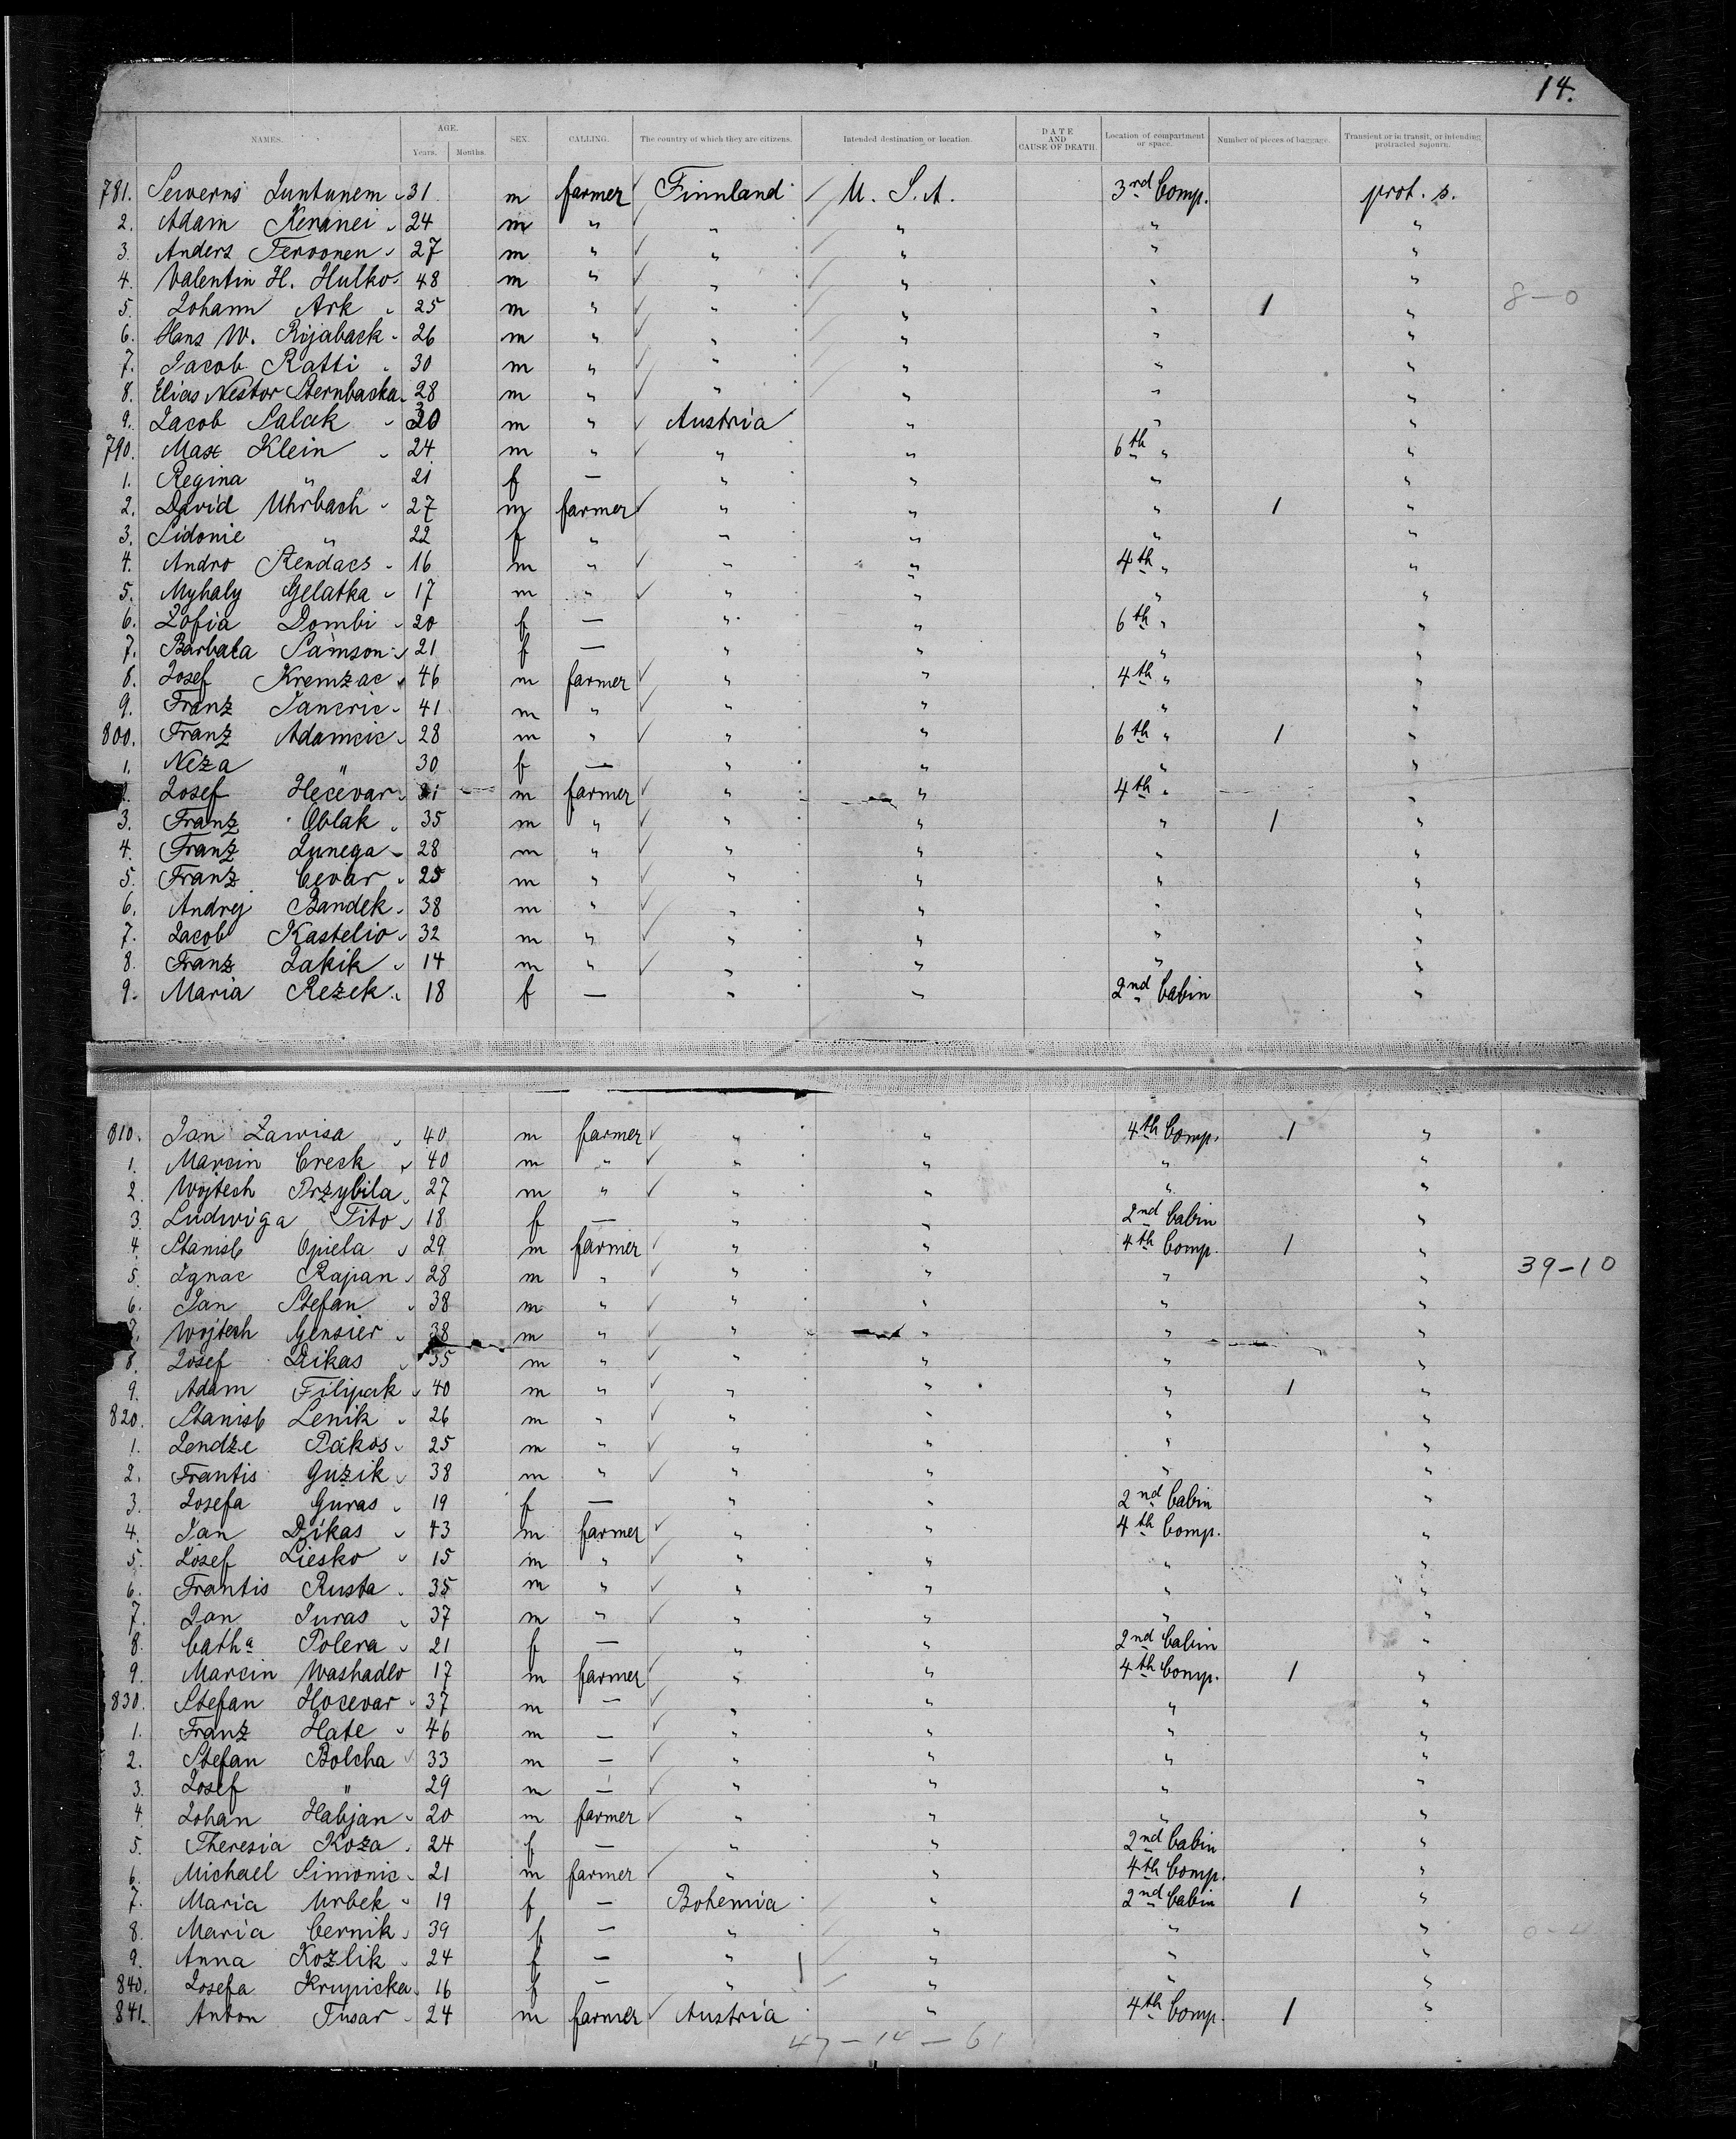 14.
NAMES. AGE. Years. Months. SEX. CALLING. The country of which they are citizens. Intended destination or location. DATE AND CAUSE OF DEATH. Location of compartment or space. Number of pieces of baggage. Transient or in transit, or intending protracted sojourn.
781. Severns Juntunem 31 m farmer Finnland U. S. A. 3rd Comp. prot. s.
2. Adam Keranei 24 m " " " " "
3. Anders Tervonen 27 m " " " " "
4. Valentin H. Hulko 48 m " " " " "
8-0
5. Johann Ark 25 m " " " " 1 "
6. Hans W. Röjaback 26 m " " " " "
7. Jacob Ratti 30 m " " " " "
8. Elias Nestor Sternbacka 28 m " " " " "
9. Jacob Salak 30 m " Austria " " "
790. Max Klein 24 m " " " 6th " "
1. Regina " 21 f — " " " "
2. David Uhrbach 27 m farmer " " " 1 "
3. Sidonie " 22 f " " " " "
4. Andro Kendacs 16 m " " " 4th " "
5. Myhaly Gelatka 17 m " " " " "
6. Zofia Dombi 20 f — " " 6th " "
7. Barbala Samson 21 f — " " " "
8. Josef Kremzac 46 m farmer " " 4th " "
9. Franz Jancric 41 m " " " " "
800. Franz Adamcic 28 m " " " 6th " 1 "
1. Neza " 30 f — " " " "
Josef Hecevar 31 m farmer " " 4th " "
3. Franz Oblak 35 m " " " " 1 "
4. Franz Zunega 28 m " " " " "
5. Franz Cevar 25 m " " " " "
6. Andrej Bandek 38 m " " " " "
7. Jacob Kastelio 32 m " " " " "
8. Franz Zakik 14 m " " " " "
9. Maria Rezek 18 f — " " 2nd Cabin "
810. Jan Zawisa 40 m farmer " " 4th Comp. 1 "
1. Marcin Creck 40 m " " " " "
2. Wojtech Przybila 27 m " " " " "
3. Ludwiga Tito 18 f — " " 2nd Cabin "
4. Stanisl Opiela 29 m farmer " " 4th Comp. 1 "
39-10
5. Ignac Rapan 28 m " " " " "
6. Jan Stefan 38 m " " " " "
Wojtech Gensier 38 m " " " " "
8. Josef Dzikas 35 m " " " " "
9. Adam Filipak 40 m " " " " 1 "
820. Stanisl Lenik 26 m " " " " "
1. Jendze Pakos 25 m " " " " "
2. Frantis Guzik 38 m " " " " "
3. Josefa Guras 19 f — " " 2nd Cabin "
4. Jan Dzikas 43 m farmer " " 4th Comp. "
5. Josef Liesko 15 m " " " " "
6. Frantis Rusta 35 m " " " " "
7. Jan Juras 37 m " " " " "
8. Catha Polera 21 f — " " 2nd Cabin "
9. Marcin Washadlo 17 m farmer " " 4th Comp. 1 "
830. Stefan Hocevar 37 m — " " " "
1. Franz Hate 46 m — " " " "
2. Stefan Bolcha 33 m — " " " "
3. Josef " 29 m — " " " "
4. Johan Habjan 20 m farmer " " " "
5. Theresia Koza 24 f — " " 2nd Cabin "
6. Michael Simonic 21 m farmer " " 4th Comp. "
7. Maria Urbek 19 f — Bohemia " 2nd Cabin 1 "
8. Maria Cernik 39 f — " " " "
9. Anna Kozlik 24 f — " " " "
840. Josefa Krupicka 16 f — " " " "
841. Anton Tusar 24 m farmer Austria " 4th Comp. 1 "
47-14-61